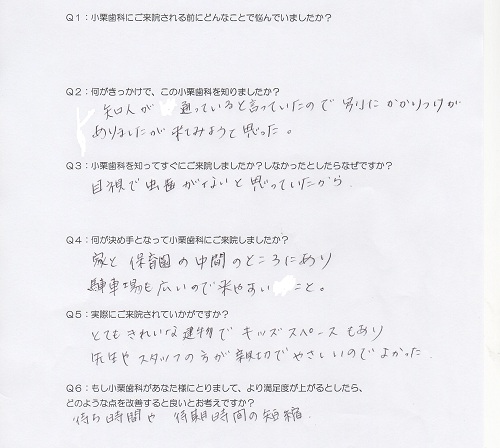 Q1：小栗歯科にご来院される前にどんなことで悩んでいましたか？
Q2：何がきっかけで、この小栗歯科を知りましたか？
知人が 通っていると言っていたので 別にかかりつけが
ありましたが 来てみようと思った。
Q3：小栗歯科を知ってすぐにご来院しましたか？しなかったとしたらなぜですか？
目視で虫歯がないと思っていたから.
Q4：何が決め手となって小栗歯科にご来院しましたか？
家と保育園の中間のところにあり
駐車場も広いので来やすい こと。
Q5：実際にご来院されていかがですか？
とてもきれいな建物でキッズスペースもあり
先生やスタッフの方が親切でやさしいのでよかった.
Q6：もし小栗歯科があなた様にとりまして、より満足度が上がるとしたら、
どのような点を改善すると良いとお考えですか？
待ち時間や 待期時間の短縮.